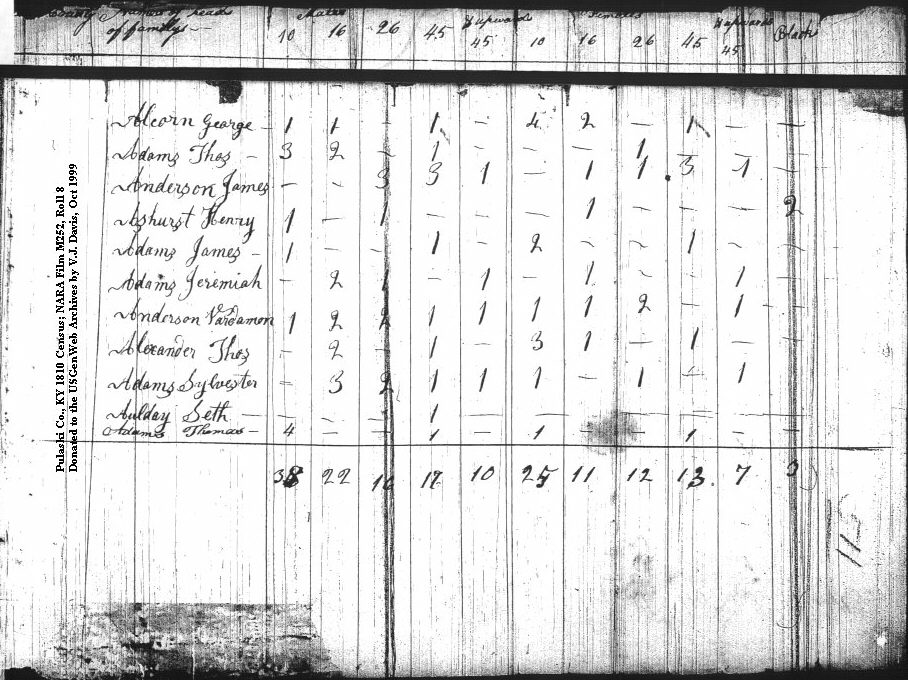 of familys Males upwards Females upwards Black
10 16 26 45 45 10 16 26 45 45
Alcorn George - 1 1 - 1 - 4 2 - 1 - -
Adams Thos - 3 2 - 1 - - - 1 - - -
Anderson James - - 3 3 1 - 1 1 3 1
Ashurst Henry 1 - 1 - - - 1 - - - 2
Adams James - 1 - - 1 - 2 - - 1 - -
Adams Jeremiah - 2 1 - 1 - 1 - - 1 -
Anderson Vardamon 1 2 2 1 1 1 1 2 - 1 -
Alexander Thos - 2 - 1 - 3 1 - 1 - -
Adams Sylvester - 3 2 1 1 1 - 1 - 1 -
Aulday Seth - - - - 1 - - - - - - -
Adams Thomas - 4 - - 1 - 1 - - 1 - -
38 22 16 17 10 25 11 12 13 7 3
115
Pulaski Co., KY 1810 Census; NARA Film M252, Roll 8
Donated to the USGenWeb Archives by V.J. Davis, Oct 1999